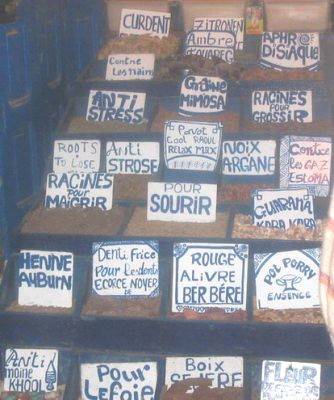 CURDENT
ZITRONEN
Ambre
APHRO
DiSiAQUE
Contre
LES MAINS
POUR
SOURCIL
Graine
MIMOSA
ANTi
STRESS
RACiNES
POUR
GROSSiR
Pavot d
Cool RAOUL
RELAX MIX
ROOTS
To LOSE
Anti
STROSE
NOiX
ARGANE
Contre
LES GAZ
ESTOMA
RACINES
POUR
MAiGRiR
POUR
SOURIR
GUARANA
KARA KARA
HENNE
AUBURN
Denti Frice
Pour Lesdonts
ECORCE NOYER
DE
ROUGE
A LIVRE
BERBÈRE
POT PORRY
ENSENCE
Anti
Moine
KHOOL
Pour
LeFoie
Boix
REJEFRE
FLEUR